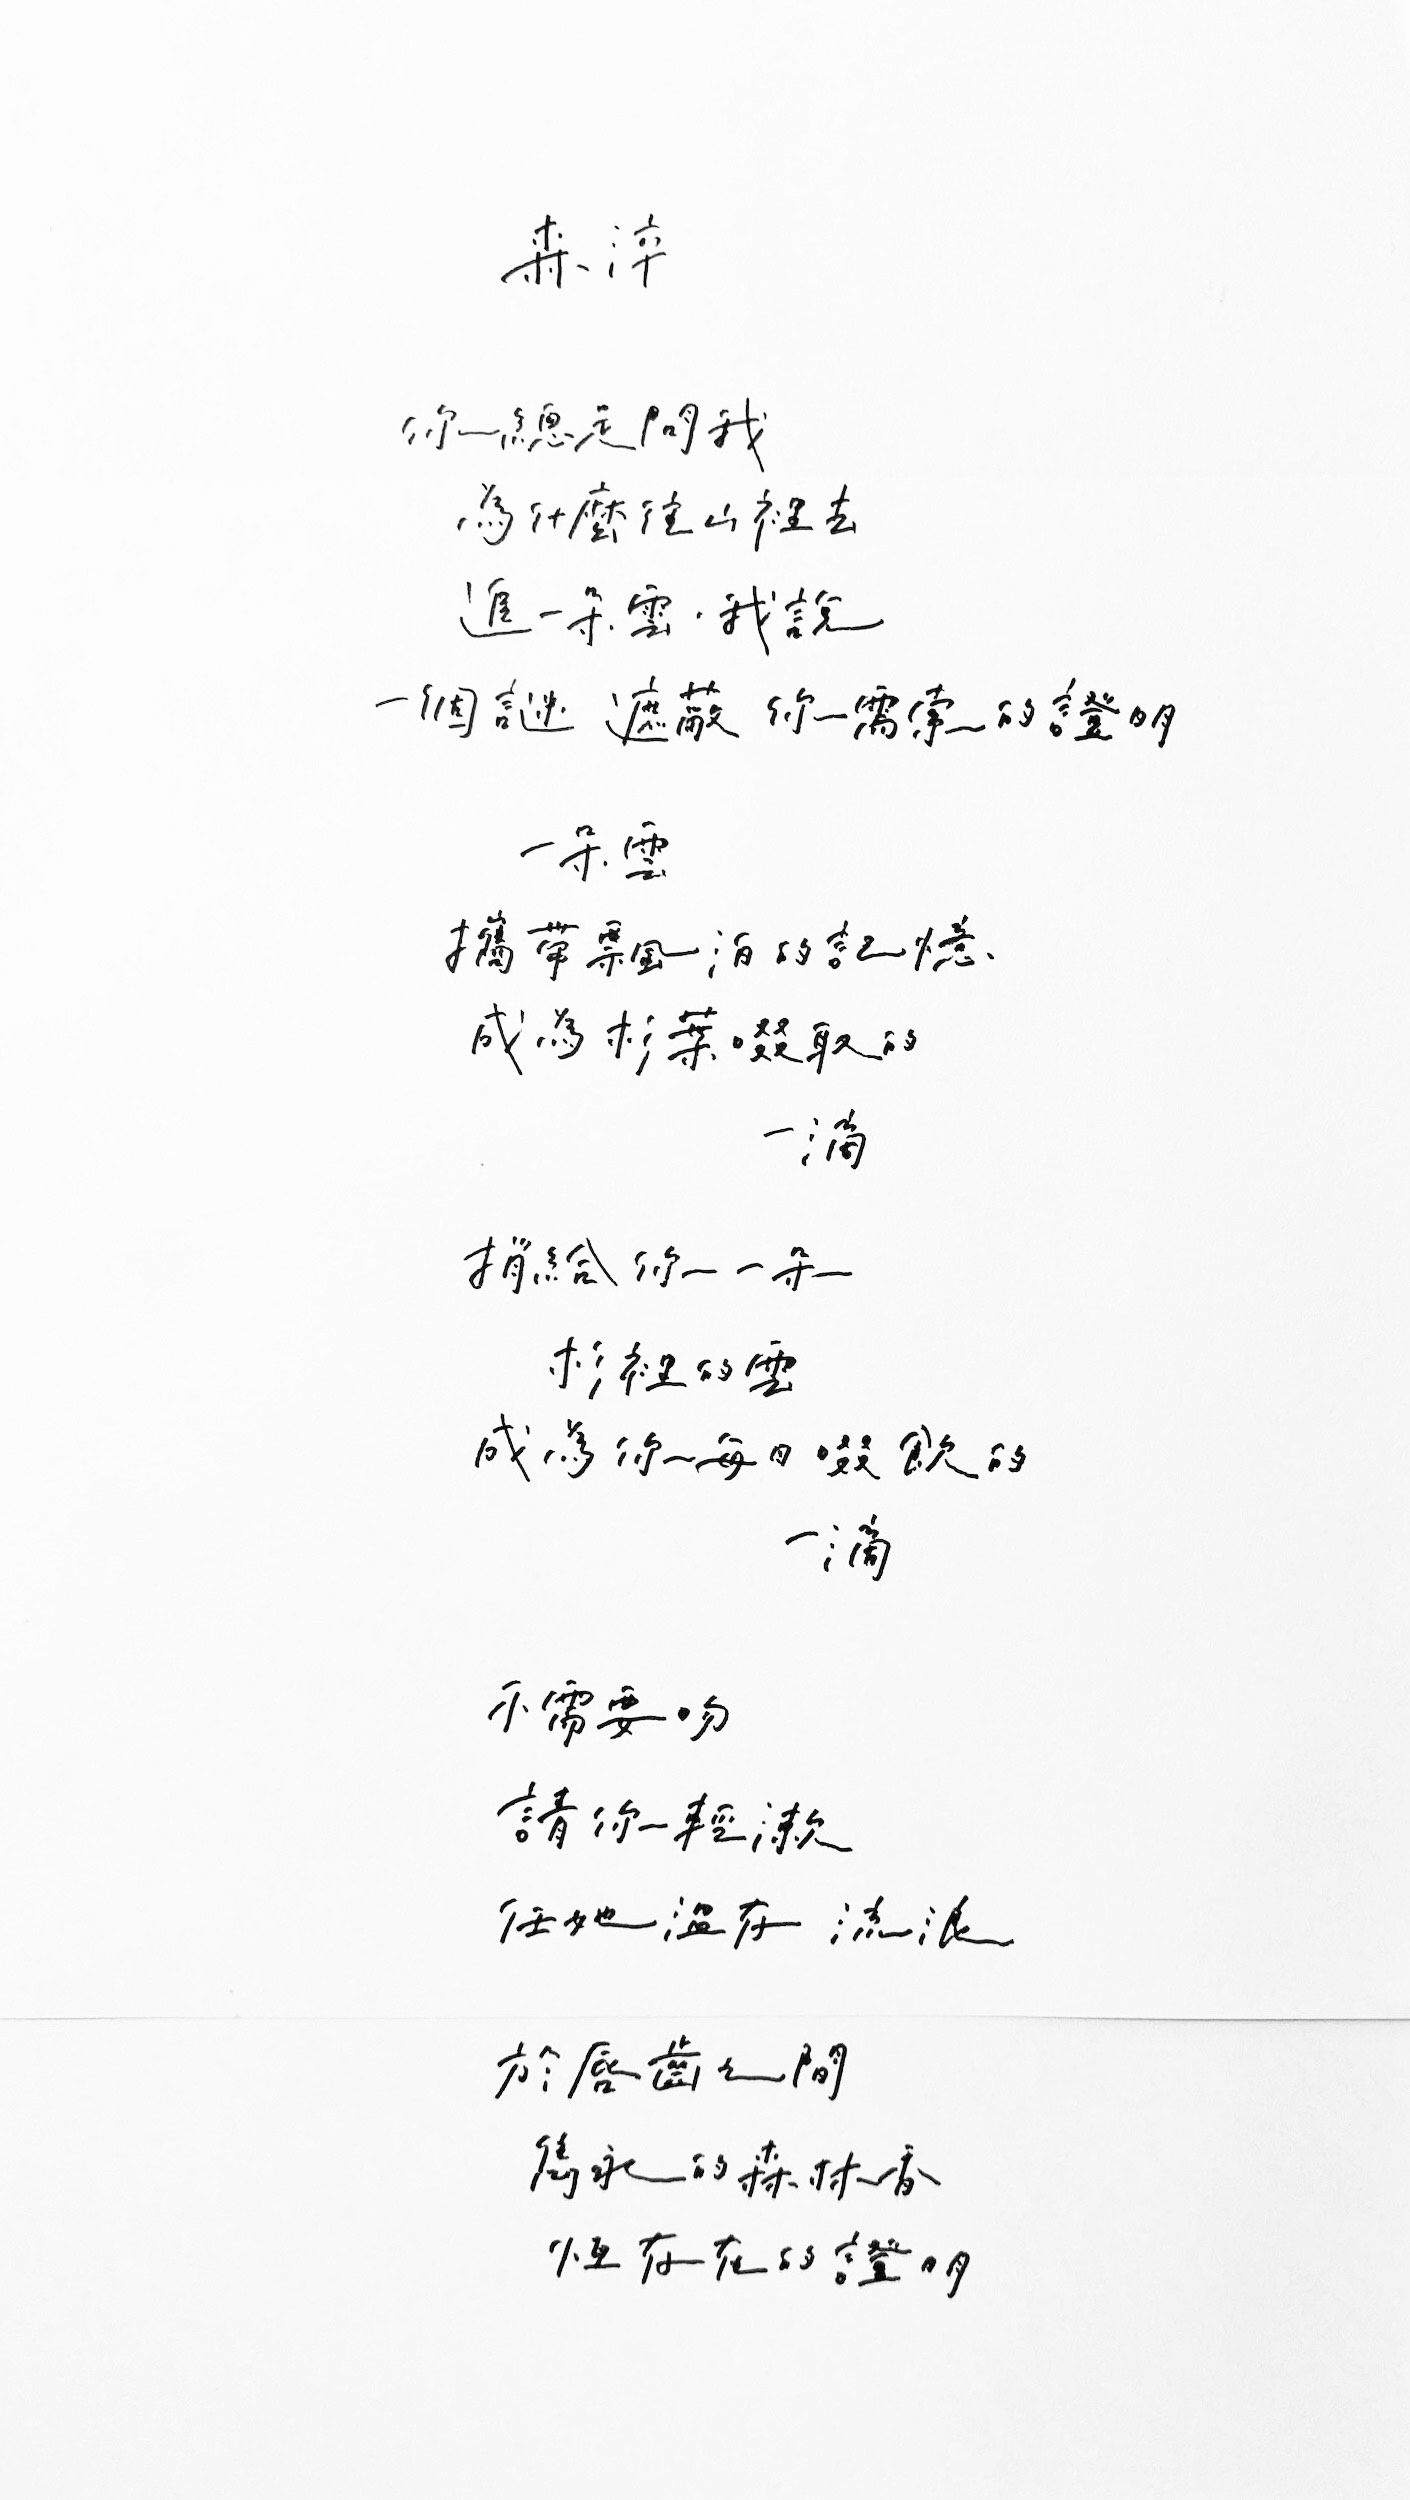 森淬
你總是問我
為什麼往山裡去
進一朵雲，我說
一個謎 遮蔽 你需索的證明
一朵雲
攜帶飄泊的記憶
成為杉葉啜取的
一滴
捎給你一朵
杉裡的雲
成為你每日啜飲的
一滴
不需要吻
請你輕漱
任她溫存 流浪
於唇齒之間
雋永的森林香
恆存在的證明